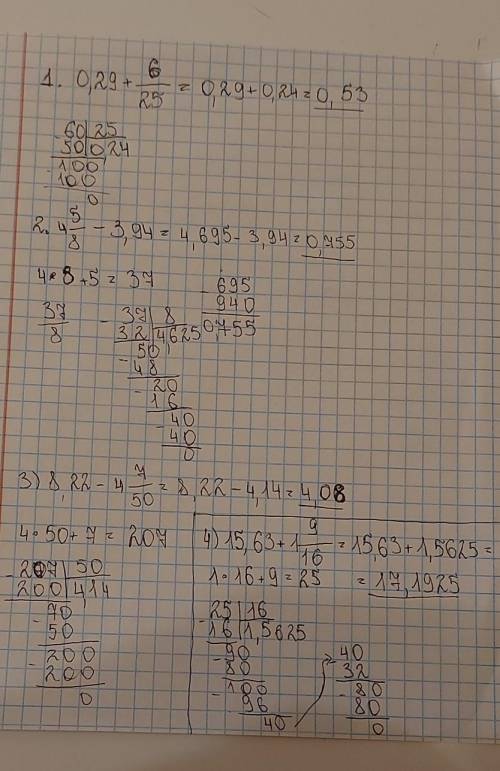 1. 0,29 + 6/25 = 0,29 + 0,24 = 0,53
- 60 | 25
50 | 0 24
- 100
100
0
2. 4 5/8 - 3,94 = 4,695 - 3,94 = 0,755
4 • 8 + 5 = 37
37/8
- 37 | 8
32 | 4625
- 50
48
- 20
16
- 40
40
0
- 695
940
0,755
3) 8,22 - 4 7/50 = 8,22 - 4,14 = 4,08
4 • 50 + 7 = 207
- 207 | 50
200 | 4,14
- 70
50
- 200
200
0
4) 15,63 + 1 9/16 = 15,63 + 1,5625 =
1 • 16 + 9 = 25 = 17,1925
- 25 | 16
16 | 1,5625
- 90
80
- 100
96
40
- 40
32
- 80
80
0